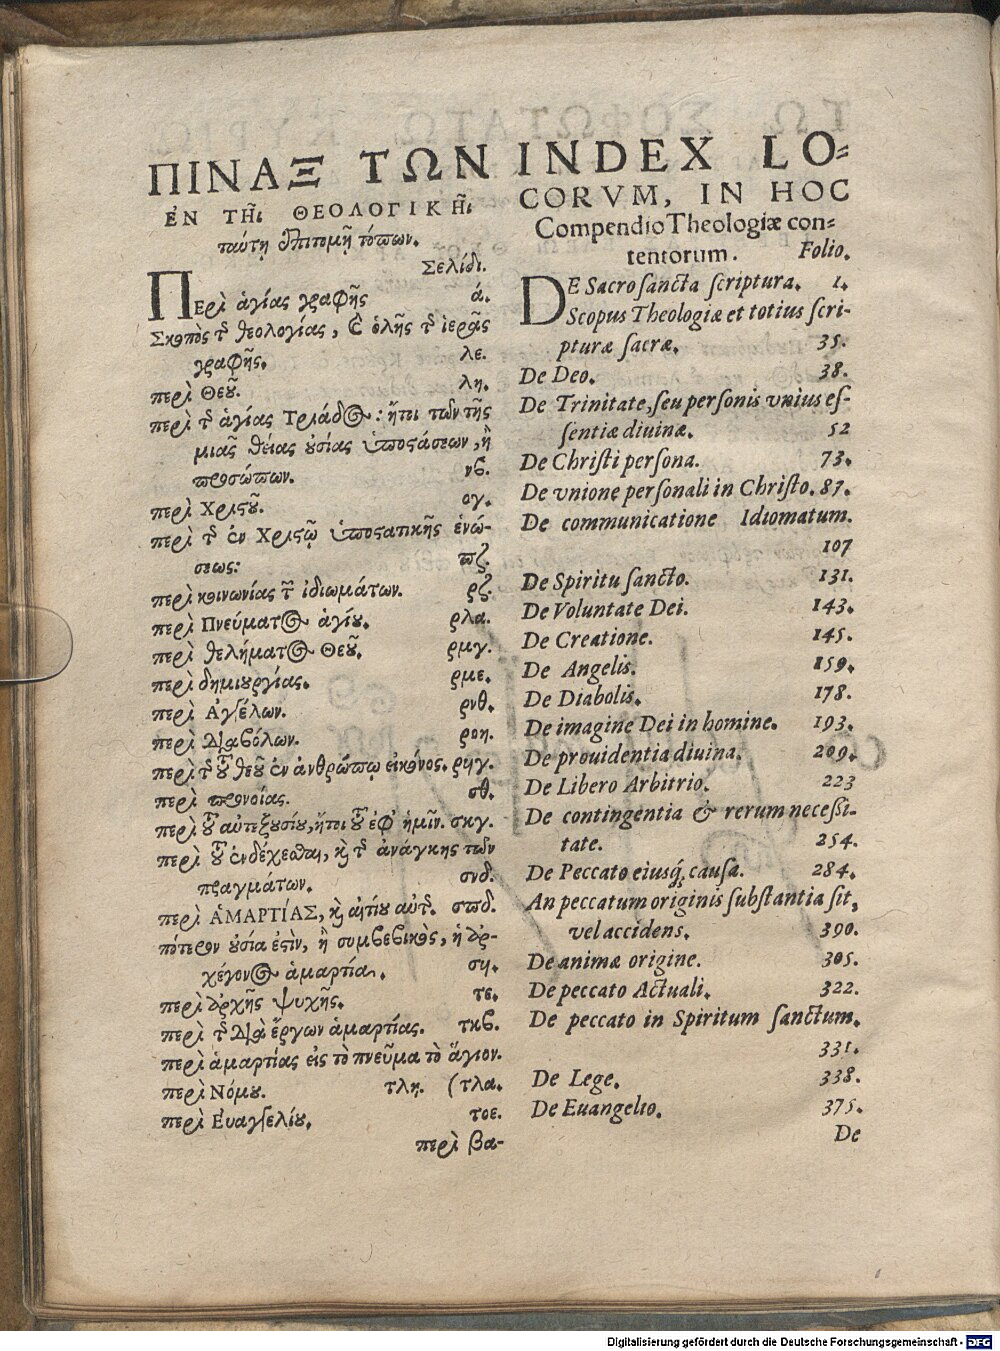 ΠΙΝΑΞ ΤΩΝ
ἘΝ ΤΗ͂ι ΘΕΟΛΟΓΙΚΗ͂ι
ταύτῃ ἐπιτομῇ τόπων.
Σελίδι.
Περὶ ἁγίας γραφῆς ά.
Σκοπὸς τῆς θεολογίας, καὶ ὁλῆς τῆς ἱερᾶς
γραφῆς. λε.
περὶ Θεοῦ. λη.
περὶ τῆς ἁγίας Τριάδος: ἤτοι τῶν τῆς
μιᾶς θείας οὐσίας ὑποστάσεων, ἢ
προσώπων. νβ.
περὶ Χριστοῦ. ογ.
περὶ τῆς ἐν Χριστῷ ὑποστατικῆς ἑνώ-
σεως: πζ.
περὶ κοινωνίας τῶν ἰδιωμάτων. ρζ.
περὶ Πνεύματος ἁγίου. ρλα.
περὶ θελήματος Θεοῦ. ρμγ.
περὶ δημιουργίας. ρμε.
περὶ Ἀγγέλων. ρνθ.
περὶ Διαβόλων. ροη.
περὶ τῆς τοῦ θεοῦ ἐν ἀνθρώπῳ εἰκόνος. ρϟγ.
περὶ προνοίας. σθ.
περὶ τοῦ αὐτεξουσίου, ἤτοι τοῦ ἐφ' ἡμῖν. σκγ.
περὶ τοῦ ἐνδέχεσθαι, καὶ τῆς ἀνάγκης τῶν
πραγμάτων. σνδ.
περὶ ἉΜΑΡΤΊΑΣ, καὶ αἰτίου αὐτῆς. σπδ.
πότερον οὐσία ἐστὶν, ἢ συμβεβικὸς, ἡ ἀρ-
χέγονος ἁμαρτία.
περὶ ἀρχῆς ψυχῆς. τε.
περὶ τῆς διὰ ἔργων ἁμαρτίας. τκβ.
περὶ ἁμαρτίας εἰς τὸ πνεῦμα τὸ ἅγιον.
περὶ Νόμου. τλη. (τλα.
περὶ Ευαγγελίου. τοε.
περὶ βα-
INDEX LO-
CORVM, IN HOC
Compendio Theologiæ con-
tentorum. Folio.
DE Sacrosancta scriptura. 1.
Scopus Theologiæ et totius scri-
pturæ sacræ. 35.
De Deo. 38.
De Trinitate, seu personis vnius es-
sentiæ diuinæ. 52
De Christi persona. 73.
De vnione personali in Christo. 87.
De communicatione Idiomatum.
107
De Spiritu sancto. 131.
De Voluntate Dei. 143.
De Creatione. 145.
De Angelis. 159.
De Diabolis. 178.
De imagine Dei in homine. 193.
De prouidentia diuina. 209.
De Libero Arbitrio. 223
De contingentia & rerum necessi-
tate. 254.
De Peccato eiusq́; causa. 284.
An peccatum originis substantia sit,
vel accidens. 390.
De animæ origine. 305.
De peccato Actuali. 322.
De peccato in Spiritum sanctum.
331.
De Lege. 338.
De Euangelio. 375.
De
Digitalisierung gefördert durch die Deutsche Forschungsgemeinschaft - DFG